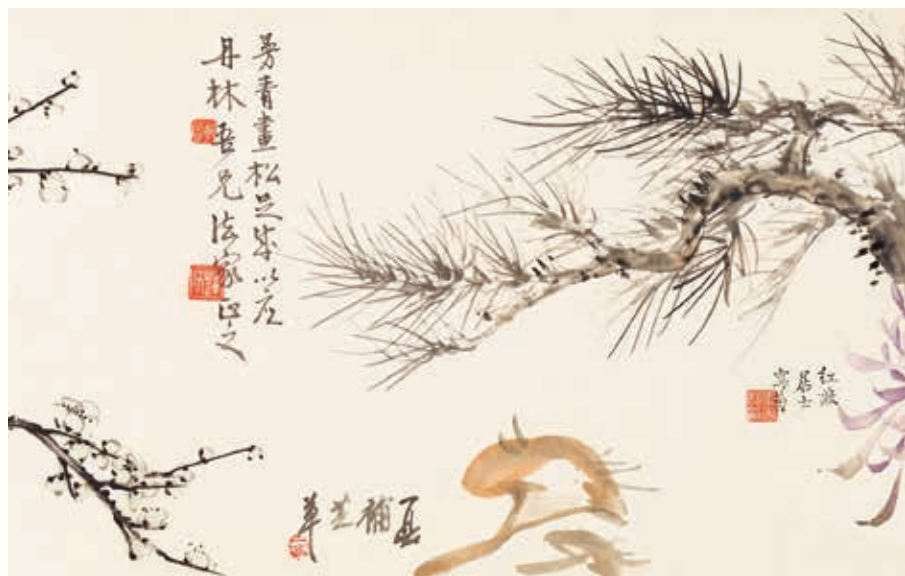 曼青畫松足成以應
丹林吾兄法家正之
紅薇
居士
寫菊
補芝草